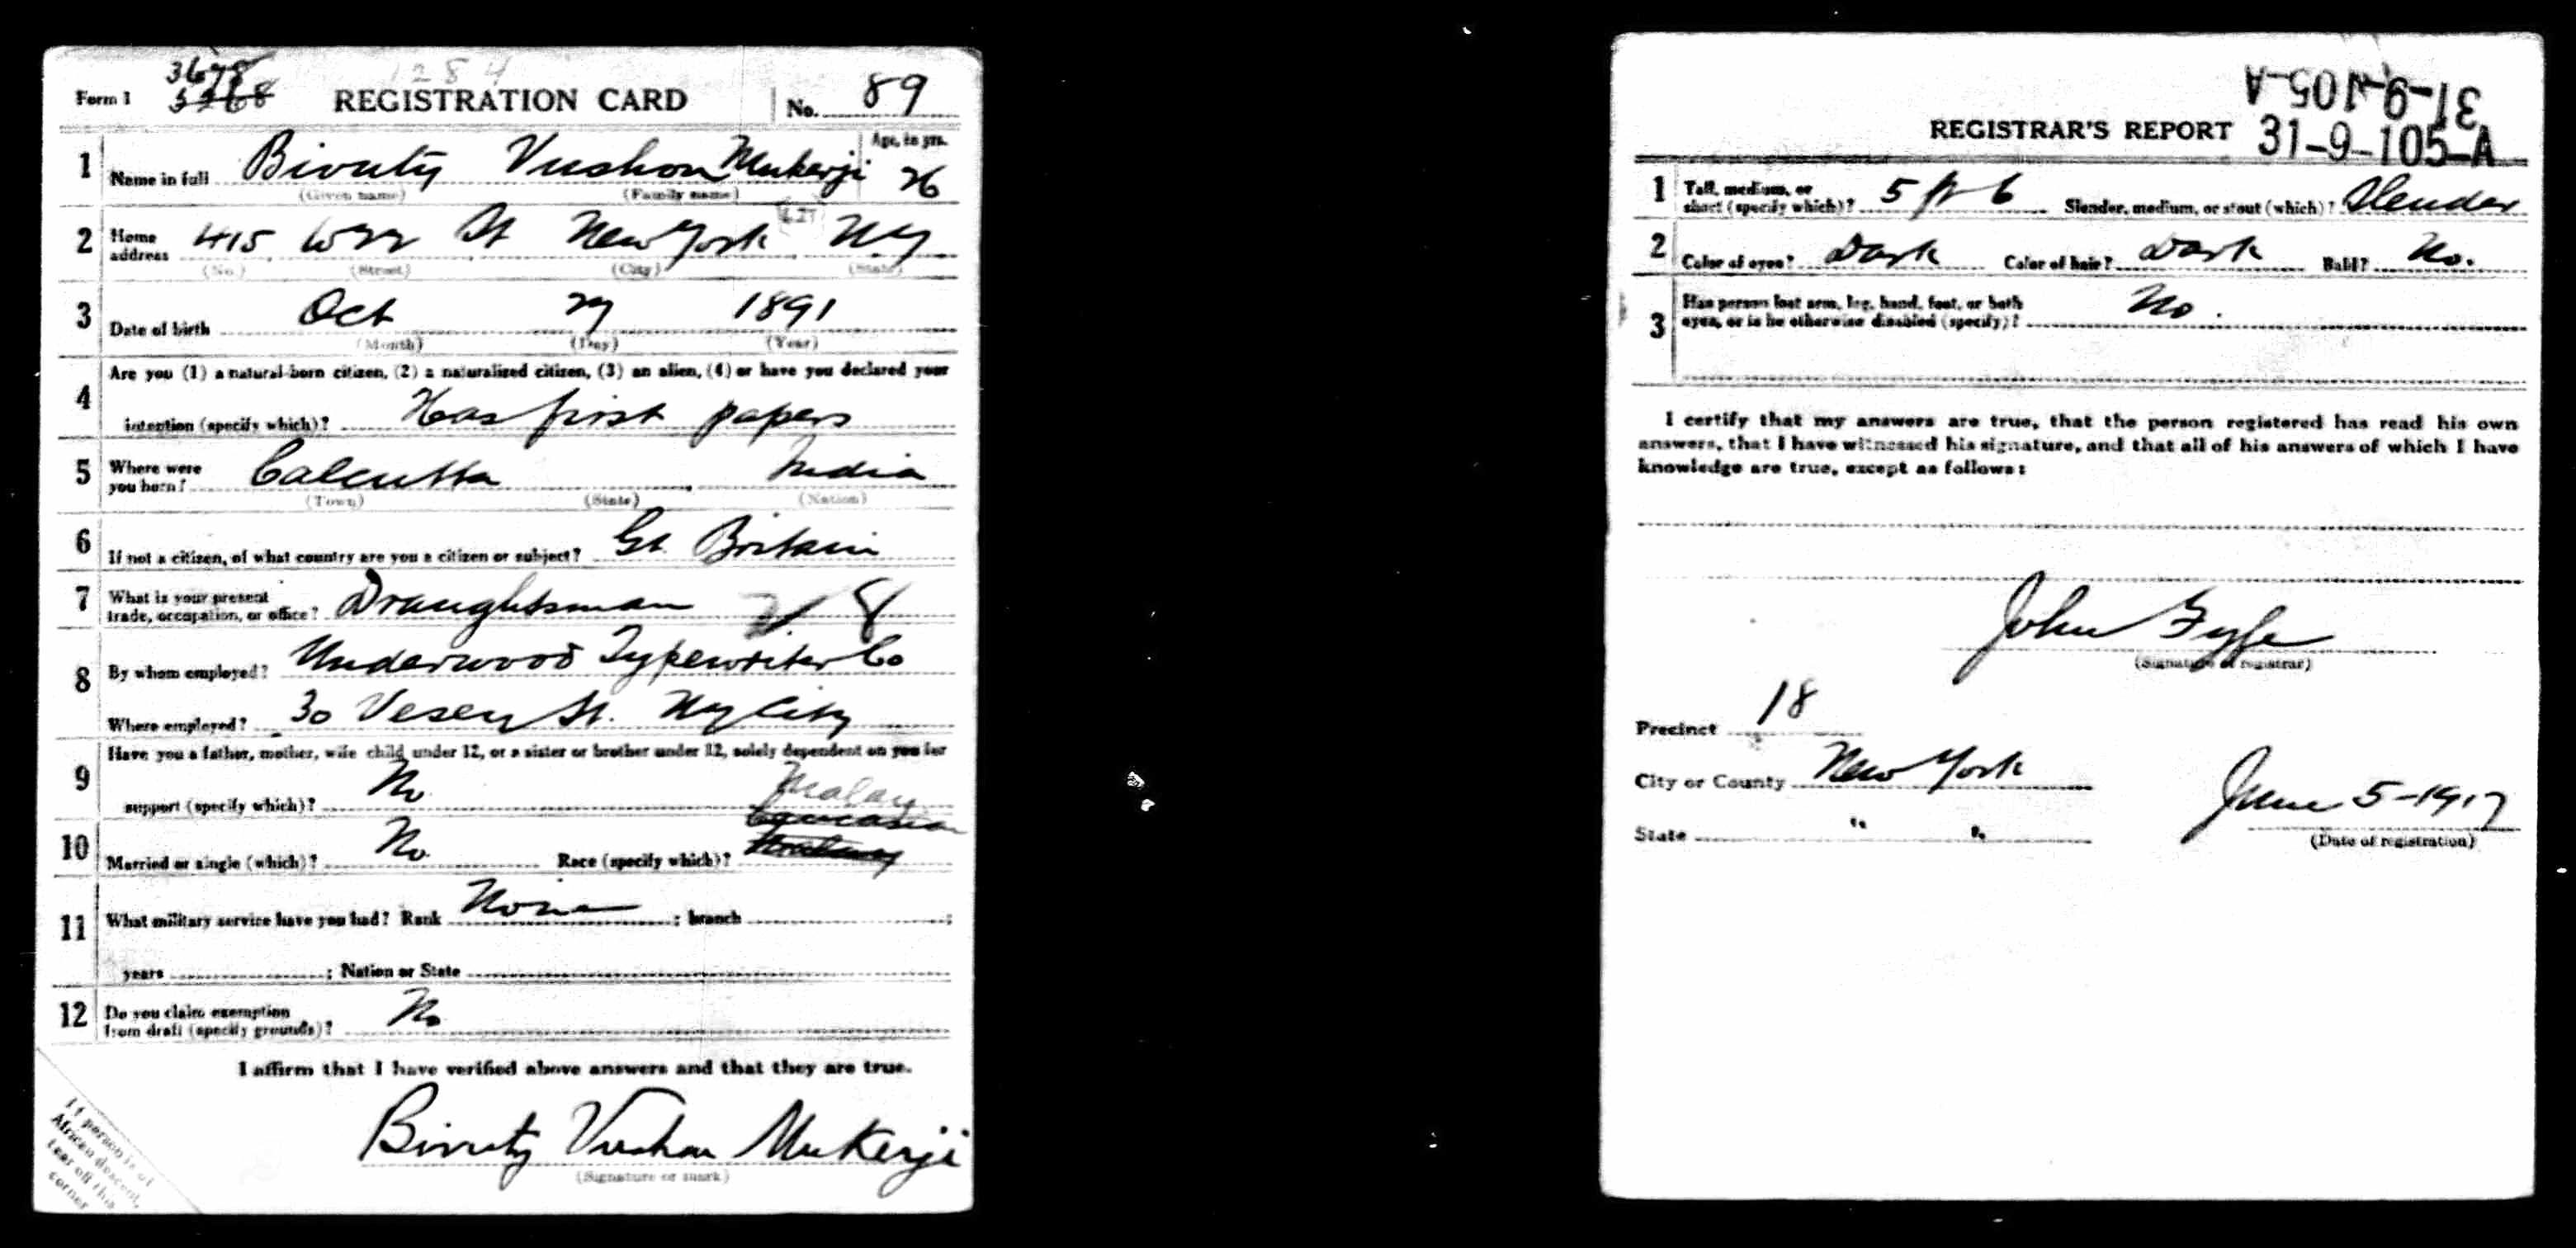 3678
1284
Form 1 5268 REGISTRATION CARD No. 89
1 Name in full Bivuty Vushon Mukerji Age, in yrs. 26
(Given name) (Family name)
2 Home address 415 W 22 St New York NY
(No.) (Street) (City) (State)
3 Date of birth Oct 27 1891
(Month) (Day) (Year)
4 Are you (1) a natural-born citizen, (2) a naturalized citizen, (3) an alien, (4) or have you declared your
intention (specify which)? Has first papers
5 Where were you born? Calcutta India
(Town) (State) (Nation)
6 If not a citizen, of what country are you a citizen or subject? Gt. Britain
7 What is your present trade, occupation, or office? Draughtsman 8
8 By whom employed? Underwood Typewriter Co
Where employed? 30 Vesey St. NY City
9 Have you a father, mother, wife child under 12, or a sister or brother under 12, solely dependent on you for
support (specify which)? No
Malay
Caucasian
10 Married or single (which)? No Race (specify which)?
11 What military service have you had? Rank None ; branch ;
years ; Nation or State
12 Do you claim exemption from draft (specify grounds)? No
I affirm that I have verified above answers and that they are true.
Bivuty Vushon Mukerji
(Signature or mark)
If person is of
African descent,
tear off this
corner
31-9-105-A
REGISTRAR'S REPORT 31-9-105-A
1 Tall, medium, or short (specify which)? 5 ft 6 Slender, medium, or stout (which)? Slender
2 Color of eyes? Dark Color of hair? Dark Bald? No.
3 Has person lost arm, leg, hand, foot, or both
eyes, or is he otherwise disabled (specify)? No.
I certify that my answers are true, that the person registered has read his own
answers, that I have witnessed his signature, and that all of his answers of which I have
knowledge are true, except as follows:
John Fyfe
(Signature of registrar)
Precinct 18
City or County New York
State " "
June 5-1917
(Date of registration)